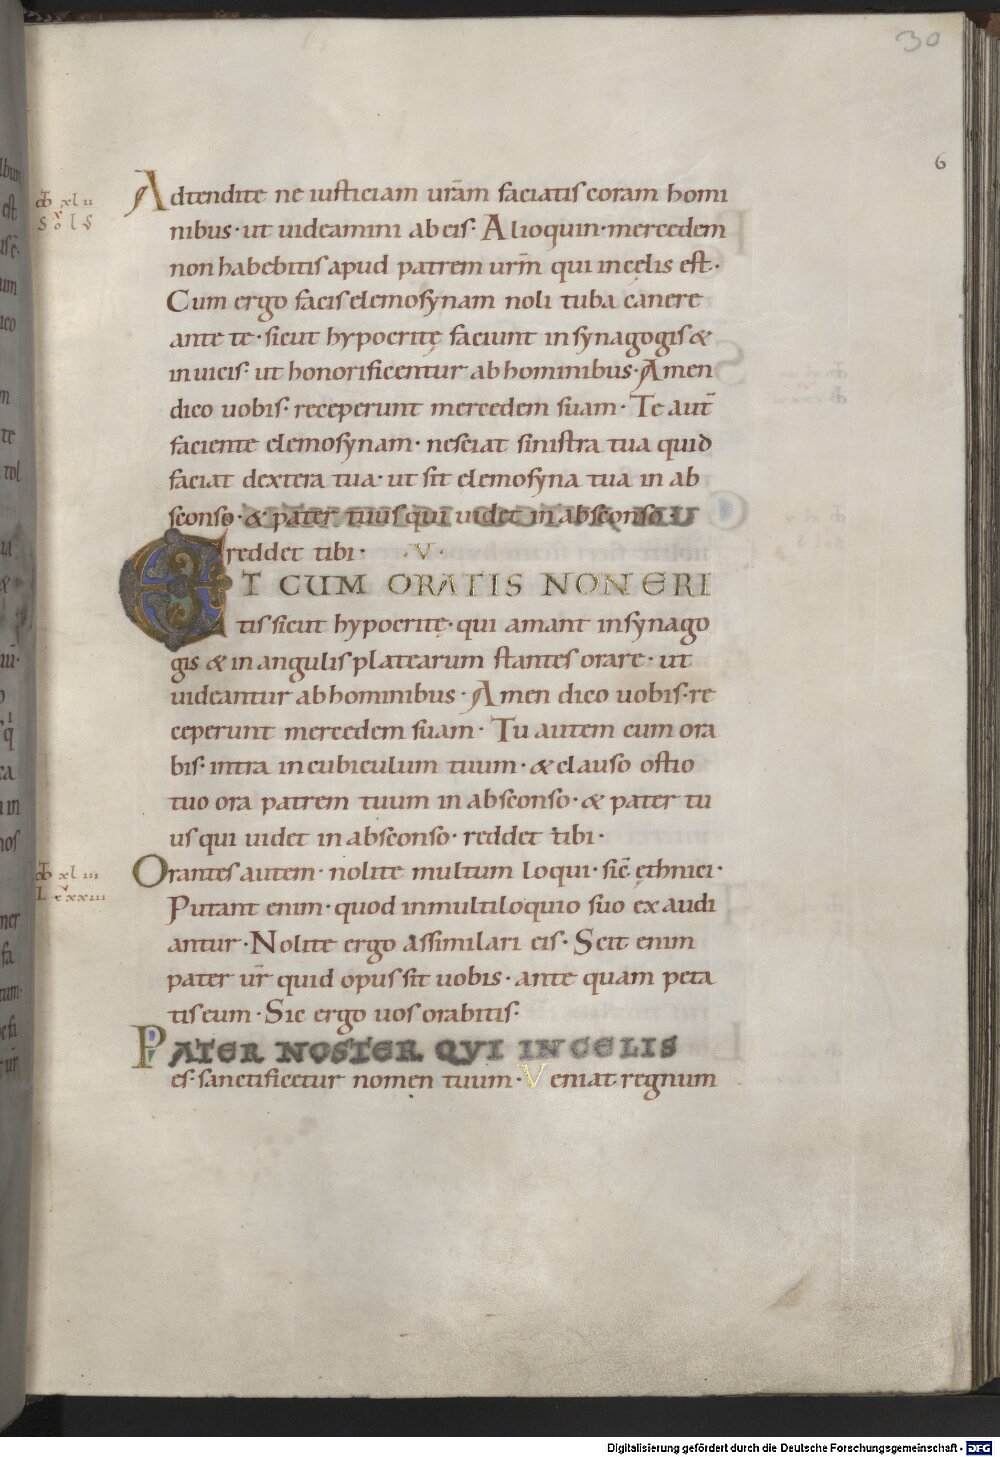 30
6
Adtendite ne iusticiam ur̄am faciatis coram homi
nibus · ut uideamini ab eis · Alioquin · mercedem
non habebitis apud patrem urm̄ qui in cęlis est ·
Cum ergo facis elemosynam noli tuba canere
ante te · sicut hypocritę faciunt in synagogis &
in uicis · ut honorificentur ab hominibus · Amen
dico uobis · receperunt mercedem suam · Te aut̄
faciente elemosynam · nesciat sinistra tua quid
faciat dextera tua · ut sit elemosyna tua in ab
sconso · & pater tuus qui uidet in absconso
reddet tibi · · V ·
ET CUM ORATIS NON ERI
tis sicut hypocritę · qui amant in synago
gis & in angulis platearum stantes orare · ut
uideantur ab hominibus · Amen dico uobis · re
ceperunt mercedem suam · Tu autem cum ora
bis · intra in cubiculum tuum · & clauso ostio
tuo ora patrem tuum in absconso · & pater tu
us qui uidet in absconso · reddet tibi ·
Orantes autem · nolite multum loqui · sic̄ ęthnici ·
Putant enim · quod in multiloquio suo exaudi
antur · Nolite ergo assimilari eis · Scit enim
pater ur̄ quid opus sit uobis · ante quam peta
tis eum · Sic ergo uos orabitis ·
PATER NOSTER QUI IN CELIS
es · sanctificetur nomen tuum · Veniat regnum
Digitalisierung gefördert durch die Deutsche Forschungsgemeinschaft - DFG